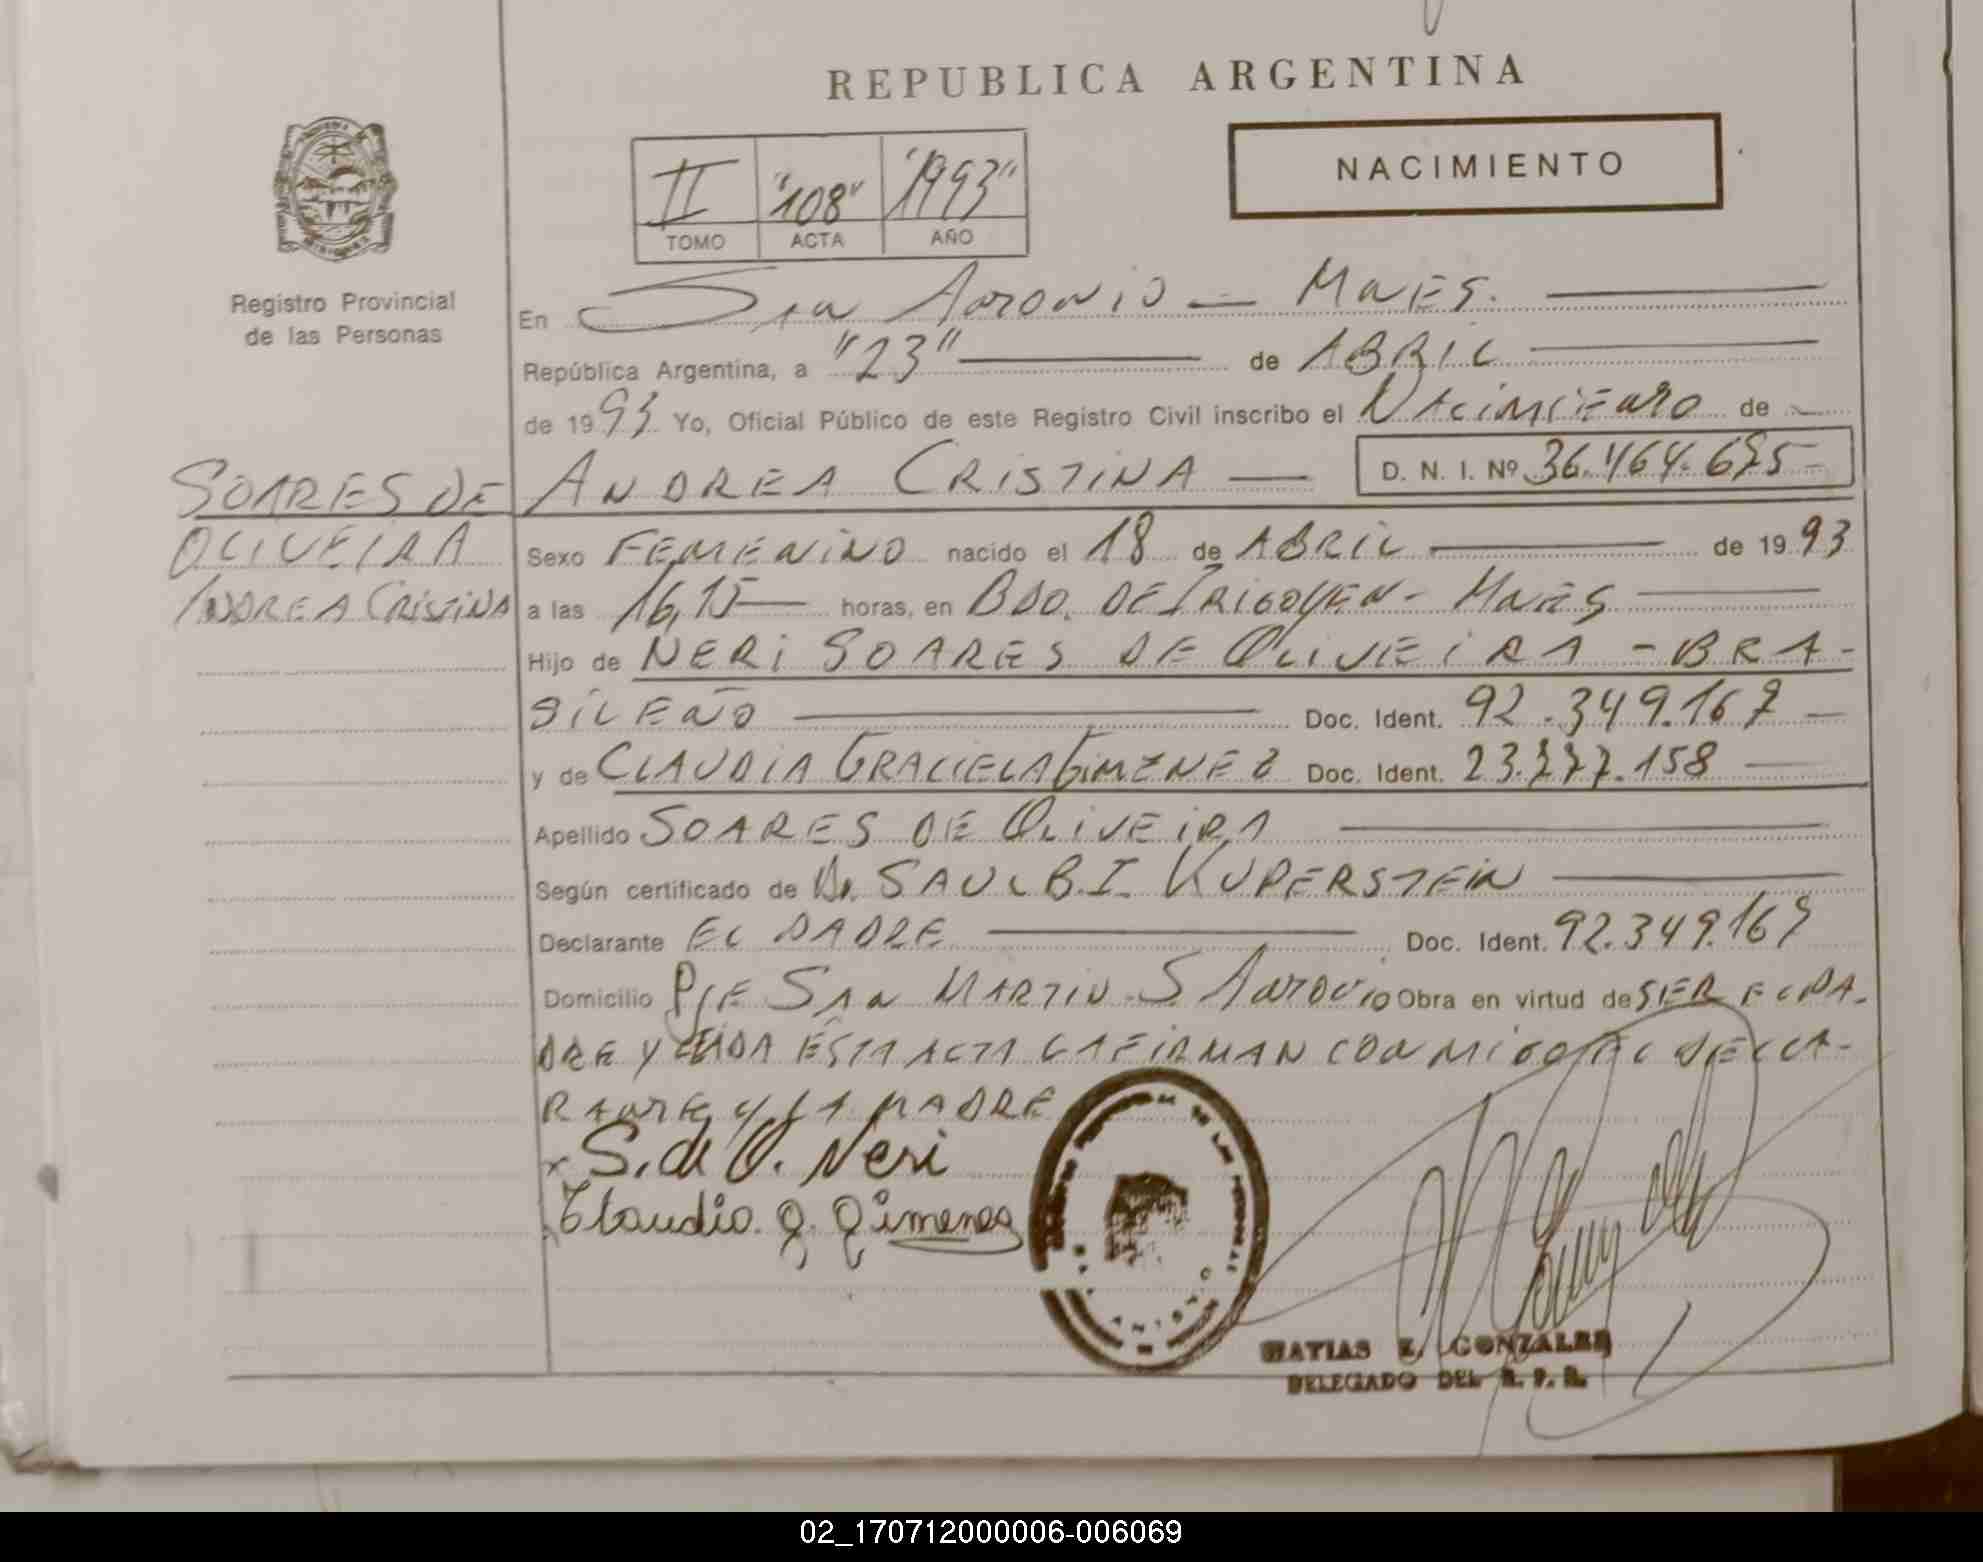 REPUBLICA ARGENTINA
NACIMIENTO
II "108" "1993"
TOMO ACTA AÑO
Registro Provincial
de las Personas
En San Antonio — Mnes.
República Argentina, a "23" de ABRIL
de 1993 Yo, Oficial Público de este Registro Civil inscribo el Nacimiento de
SOARES DE
OLIVEIRA
ANDREA CRISTINA
ANDREA CRISTINA — D. N. I. Nº 36.464.675-
Sexo FEMENINO nacido el 18 de ABRIL de 1993
a las 16,15 horas, en BDO. DE IRIGOYEN - MNES
Hijo de NERI SOARES DE OLIVEIRA - BRA-
SILEÑO Doc. Ident. 92.349.167
y de CLAUDIA GRACIELA GIMENEZ Doc. Ident. 23.777.158
Apellido SOARES DE OLIVEIRA
Según certificado de Dr. SAUL B.I. KUPERSTEIN
Declarante EL PADRE Doc. Ident. 92.349.167
Domicilio PJE SAN MARTIN - S ANTONIO Obra en virtud de SER EL PA-
DRE Y LEIDA ESTA ACTA LA FIRMAN CONMIGO EL DECLA-
RANTE Y LA MADRE
x S. de O. Neri
Claudia G. Gimenez
MATIAS E. GONZALEZ
DELEGADO DEL R. P. P.
02_170712000006-006069